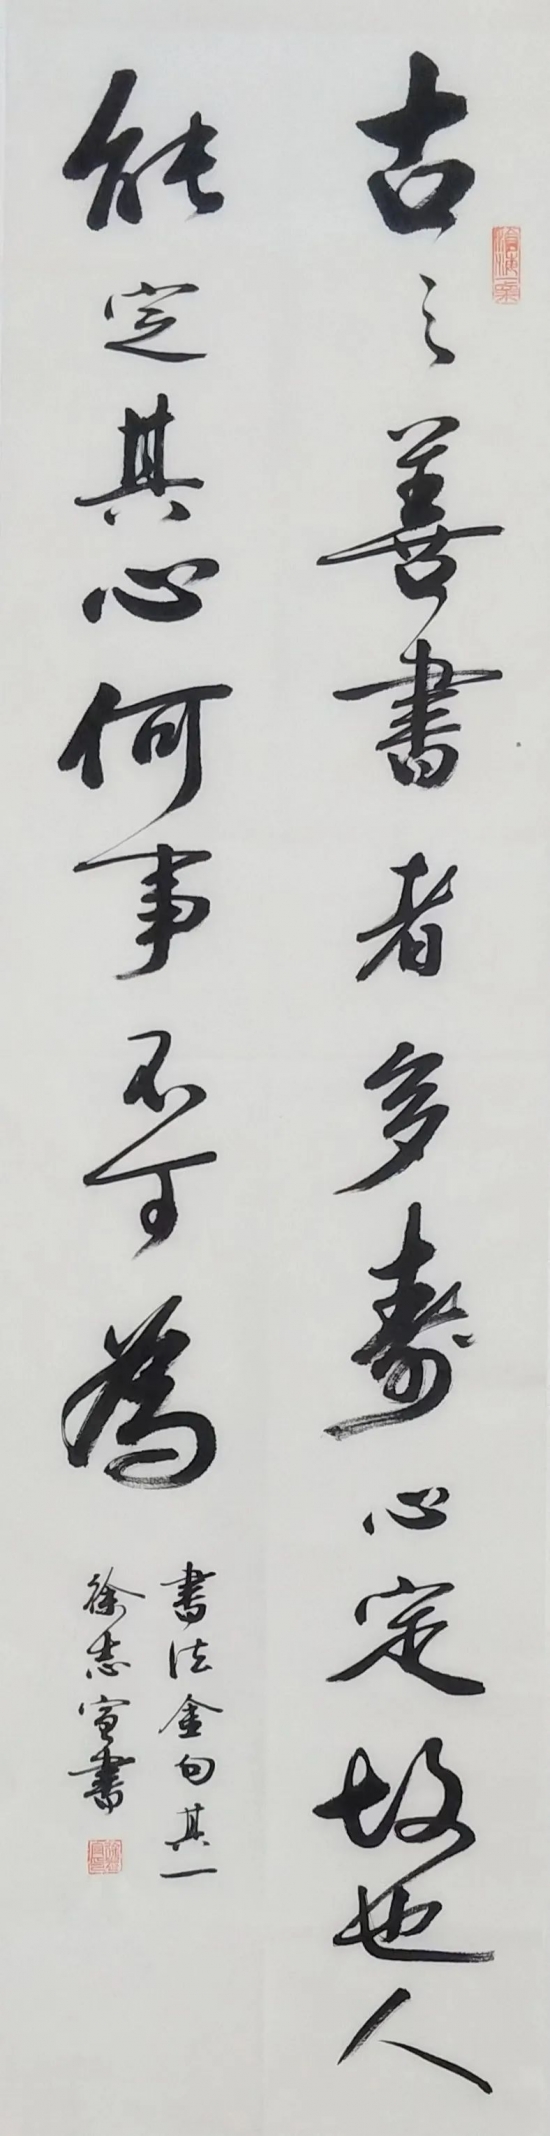 古之善書者多壽心定故也人
能定其心何事不可為
書法金句其一
徐志宣書